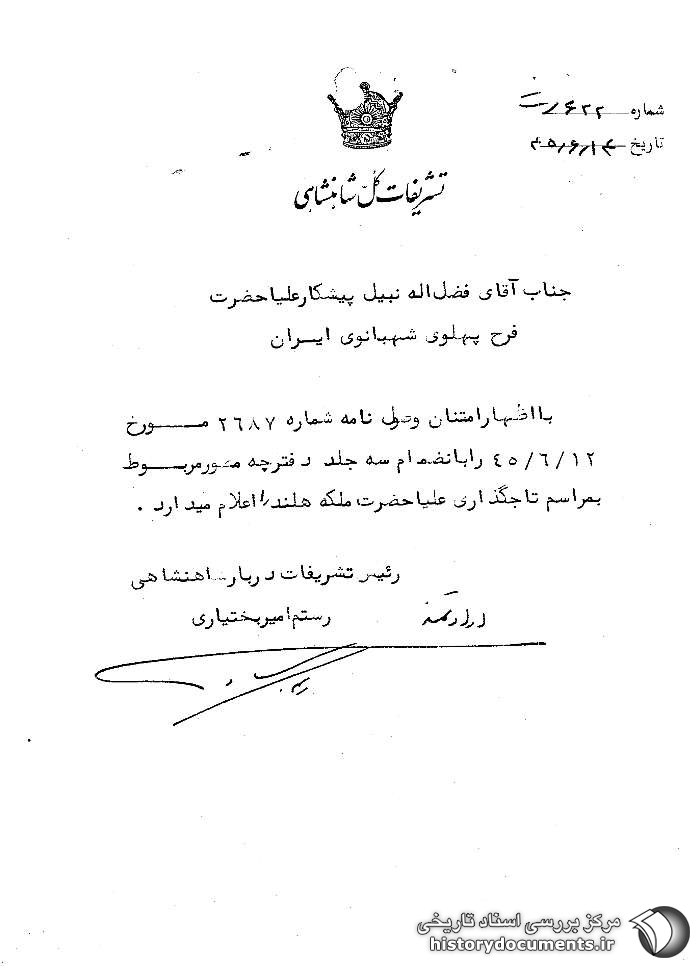 شماره ۶۲۲/ت
تاریخ ۴۵/۶/۱۴
تشریفات کل شاهنشاهی
جناب آقای فضل اله نبیل پیشکار علیاحضرت
فرح پهلوی شهبانوی ایران
با اظهار امتنان وصول نامه شماره ۲۶۸۷ مـــورخ
۴۵/۶/۱۲ را بانضمام سه جلد دفترچه مربـــوط
بمراسم تاجگذاری علیاحضرت ملکه هلند را اعلام میدارد .
رئیس تشریفات دربار شاهنشاهی
رستم امیربختیاری
مرکز بررسی اسناد تاریخی
historydocuments.ir